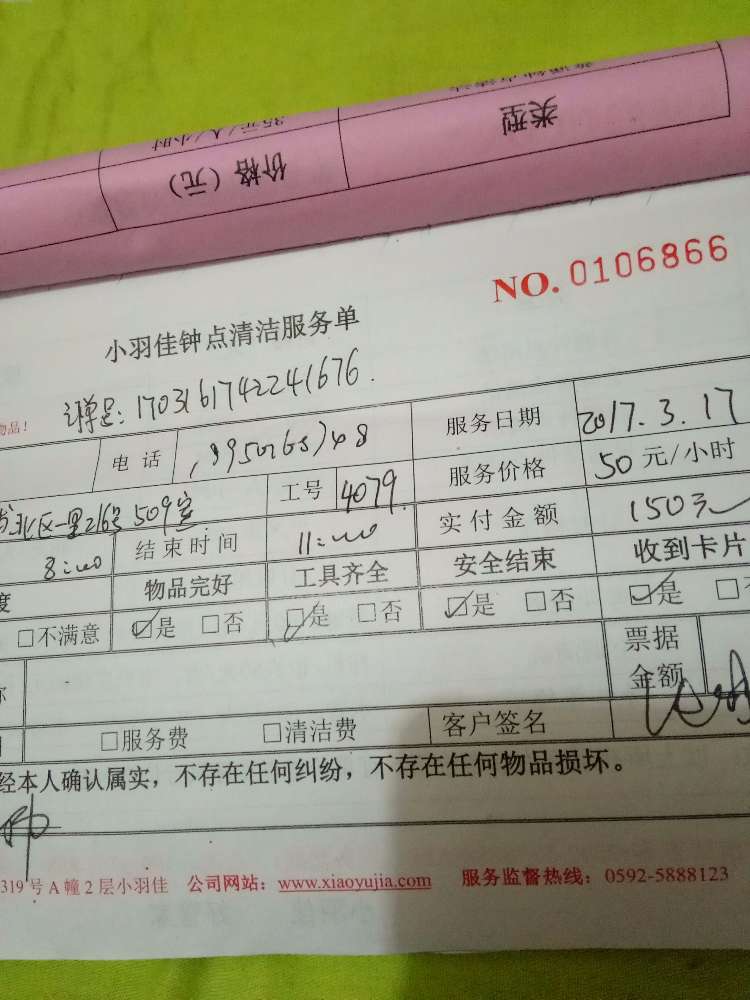 类型
价格（元）
35元/人/小时
NO. 0106866
小羽佳钟点清洁服务单
订单是: 1703161742241676.
物品！
电话
服务日期 2017.3.17
工号 4079 服务价格 50元/小时
北区一里216号509室
8:00 结束时间 11:00 实付金额 150元
度 物品完好 工具齐全 安全结束 收到卡片
□不满意 ☑是 □否 ☑是 □否 ☑是 □否 ☑是
票据
金额
□服务费 □清洁费 客户签名
经本人确认属实，不存在任何纠纷，不存在任何物品损坏。
319号A幢2层小羽佳 公司网站：www.xiaoyujia.com 服务监督热线：0592-5888123